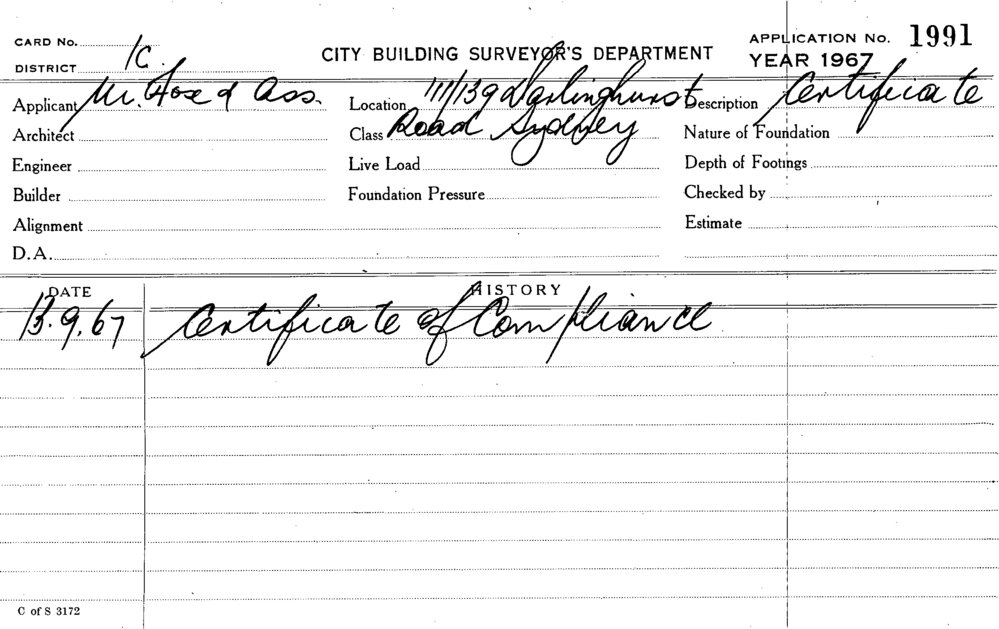 CARD No.
DISTRICT 1C.
CITY BUILDING SURVEYOR'S DEPARTMENT
APPLICATION No. 1991
YEAR 1967
Applicant Mr. & Ass. Location 111/139 Darlinghurst Description Certificate
Architect Class Road Sydney Nature of Foundation
Engineer Live Load Depth of Footings
Builder Foundation Pressure Checked by
Alignment Estimate
D.A.
DATE HISTORY
13.9.67 Certificate of Compliance
C of S 3172